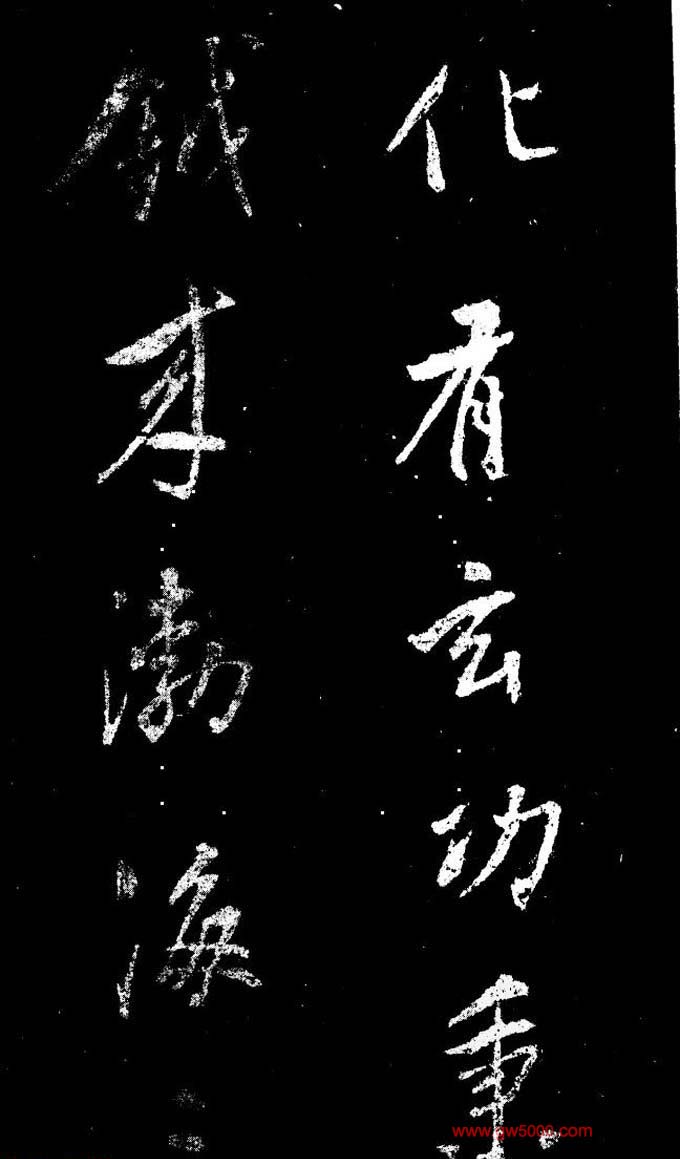 化有玄功秉
鉞渤海
www.gw5000.com